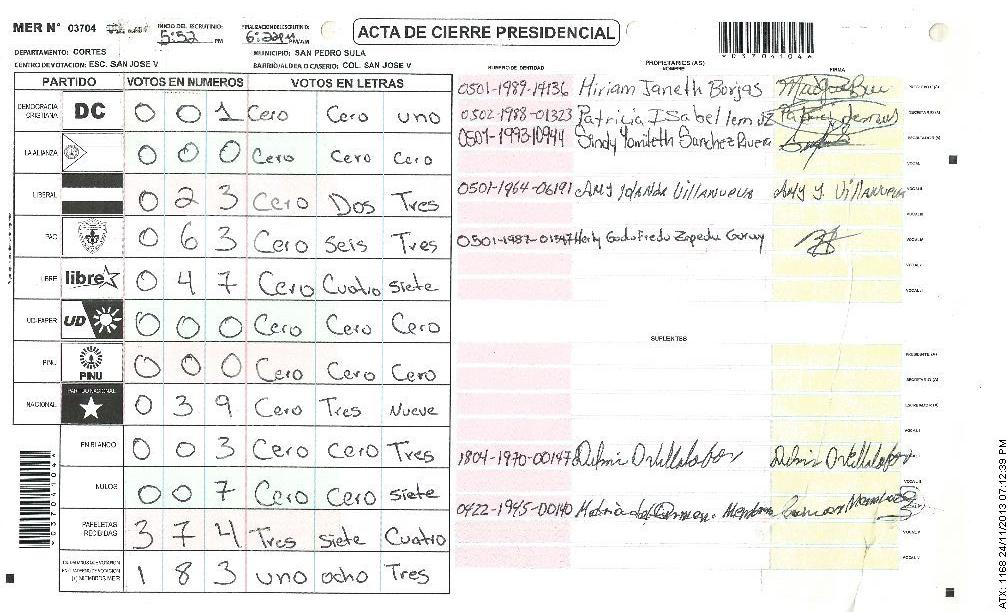 MER N° 03704 INICIO DEL ESCRUTINIO: 5:52 PM FINALIZACION DEL ESCRUTINIO: 6:22PM PM/AM
ACTA DE CIERRE PRESIDENCIAL
DEPARTAMENTO: CORTES MUNICIPIO: SAN PEDRO SULA
CENTRO DE VOTACION: ESC. SAN JOSE V BARRIO/ALDEA O CASERIO: COL. SAN JOSE V
PARTIDO VOTOS EN NUMEROS VOTOS EN LETRAS
DEMOCRACIA CRISTIANA DC 0 0 1 Cero Cero uno
LA ALIANZA 0 0 0 Cero Cero Cero
LIBERAL 0 2 3 Cero Dos Tres
PAC 0 6 3 Cero Seis Tres
LIBRE libre 0 4 7 Cero Cuatro siete
UD-FAPER UD 0 0 0 Cero Cero Cero
PINU PINU 0 0 0 Cero Cero Cero
NACIONAL PARTIDO NACIONAL 0 3 9 Cero Tres Nueve
EN BLANCO 0 0 3 Cero cero Tres
NULOS 0 0 7 Cero Cero siete
PAPELETAS RECIBIDAS 3 7 4 Tres siete Cuatro
MIEMBROS MER 1 8 3 uno ocho Tres
NUMERO DE IDENTIDAD PROPIETARIOS (AS) NOMBRE FIRMA
0501-1989-14136 Miriam Janeth Borjas
0502-1988-01323 Patricia ISabel lemuz
0501-1993-10944 Sindy Yamileth Sanchez Rivera
VOCAL I
0501-1964-06191 AMY Jolanda Villanueva AMY Y. Villanueva
0501-1987-01347 Herly Godofredo Zepeda Garay
SUPLENTES
PRESIDENTE (A)
SECRETARIO (A)
ESCRUTADOR (A)
VOCAL I
1804-1970-00147
0422-1945-00140 Maria del Carmen
ATX: 1168 24/11/2013 07:12:39 PM